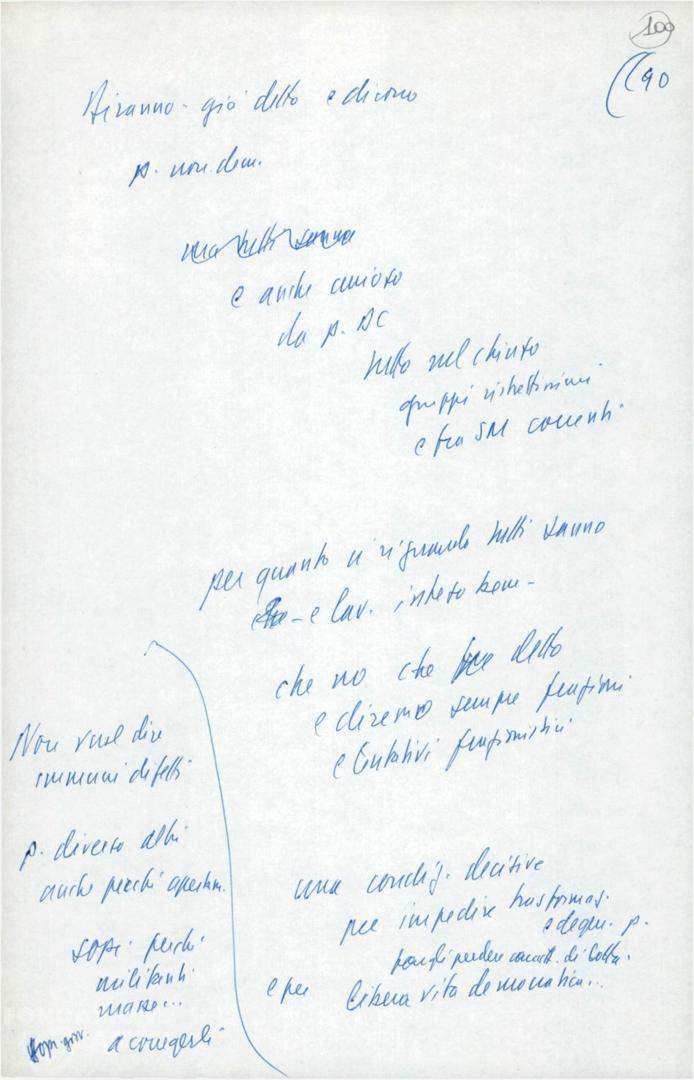 100
90
Diranno - già detto e dicono
p. non dem.
ma tutti sanno
e anche curioso
da p. DC
tutto nel chiuso
gruppi ristrettissimi
e fra SM correnti
per quanto ci riguarda tutti sanno
e lav. bene -
che noi che detto
e diremo sempre
e tentativi frazionistici
Non vuol dire
immuni difetti
p. diverso altri
anche perché apertam.
sopr. perché
militanti
masse...
a correggerli
una condiz. decisiva
per impedire trasformaz.
e degen. p.
perdere caratt. di lotta.
e per libera vita democratica...